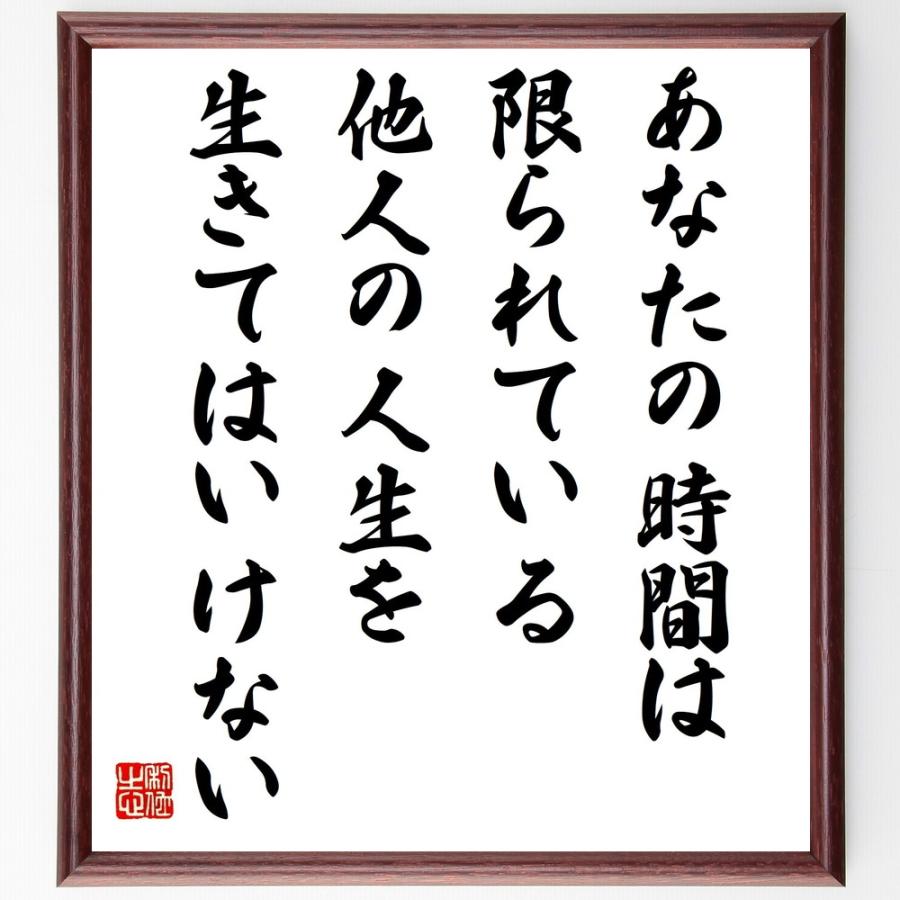 あなたの時間は
限られている
他人の人生を
生きてはいけない